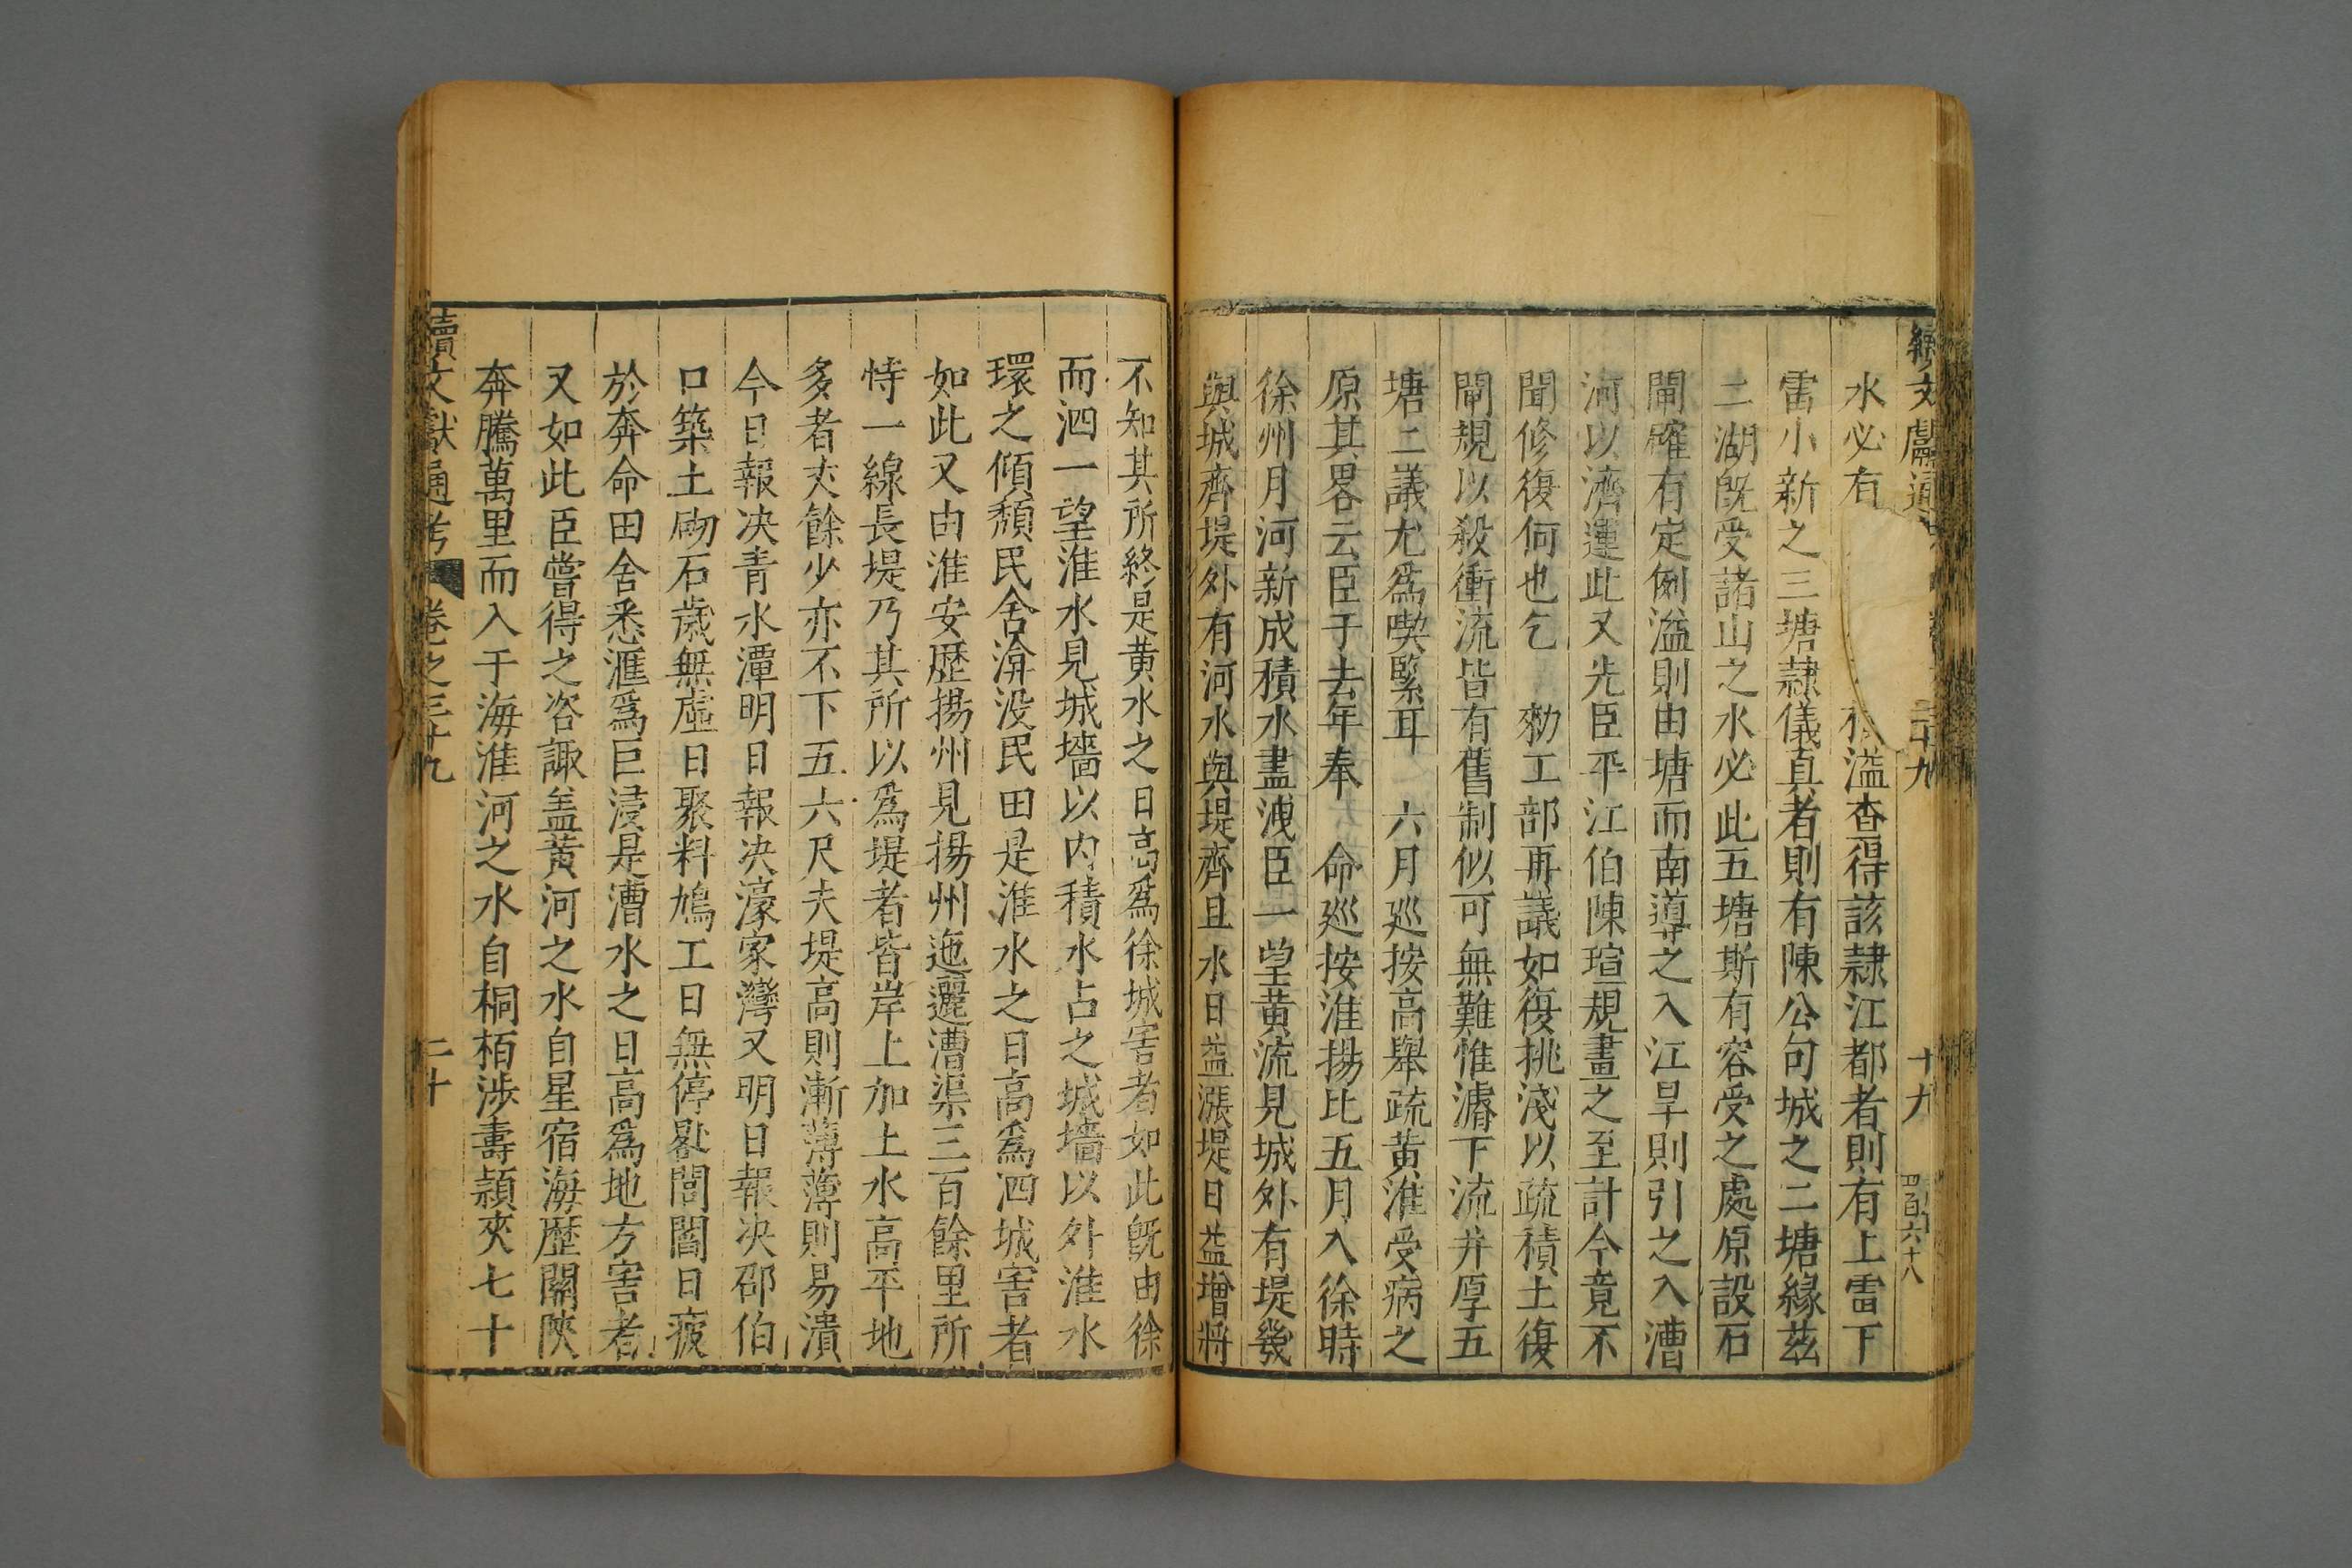 續文獻通 三十九 十九 四百六十八
水必有 積溢查得該隷江都者則有上雷下
雷小新之三塘隷儀真者則有陳公句城之二塘緣茲
二湖旣受諸山之水必此五塘斯有容受之處原設石
閘確有定例溢則由塘而南導之入江旱則引之入漕
河以濟運此又先臣平江伯陳瑄規畫之至計今竟不
聞修復何也乞 勑工部再議如復挑淺以疏積土復
閘規以殺衝流皆有舊制似可無難惟濬下流并厚五
塘二議尤爲喫緊耳 六月巡按高舉疏黃淮受病之
原其畧云臣于去年奉 命巡按淮揚比五月入徐時
徐州月河新成積水盡洩臣一望黃流見城外有堤幾
與城齊堤外有河水與堤齊且水日益漲堤日益增將
不知其所終是黃水之日高爲徐城害者如此旣由徐
而泗一望淮水見城墻以内積水占之城墻以外淮水
環之傾頹民舍渰没民田是淮水之日高爲泗城害者
如此又由淮安歷揚州見揚州迤邐漕渠三百餘里所
恃一線長堤乃其所以爲堤者皆岸上加土水高平地
多者丈餘少亦不下五六尺夫堤高則漸薄薄則易潰
今日報决青水潭明日報决濠家灣又明日報决邵伯
口築土砌石歲無虛日聚料鳩工日無停晷閭閻日疲
於奔命田舍悉滙爲巨浸是漕水之日高爲地方害者
又如此臣嘗得之咨諏盖黃河之水自星宿海歷關陝
奔騰萬里而入于海淮河之水自桐栢涉壽潁夾七十
續文獻通考 卷之三十九 二十